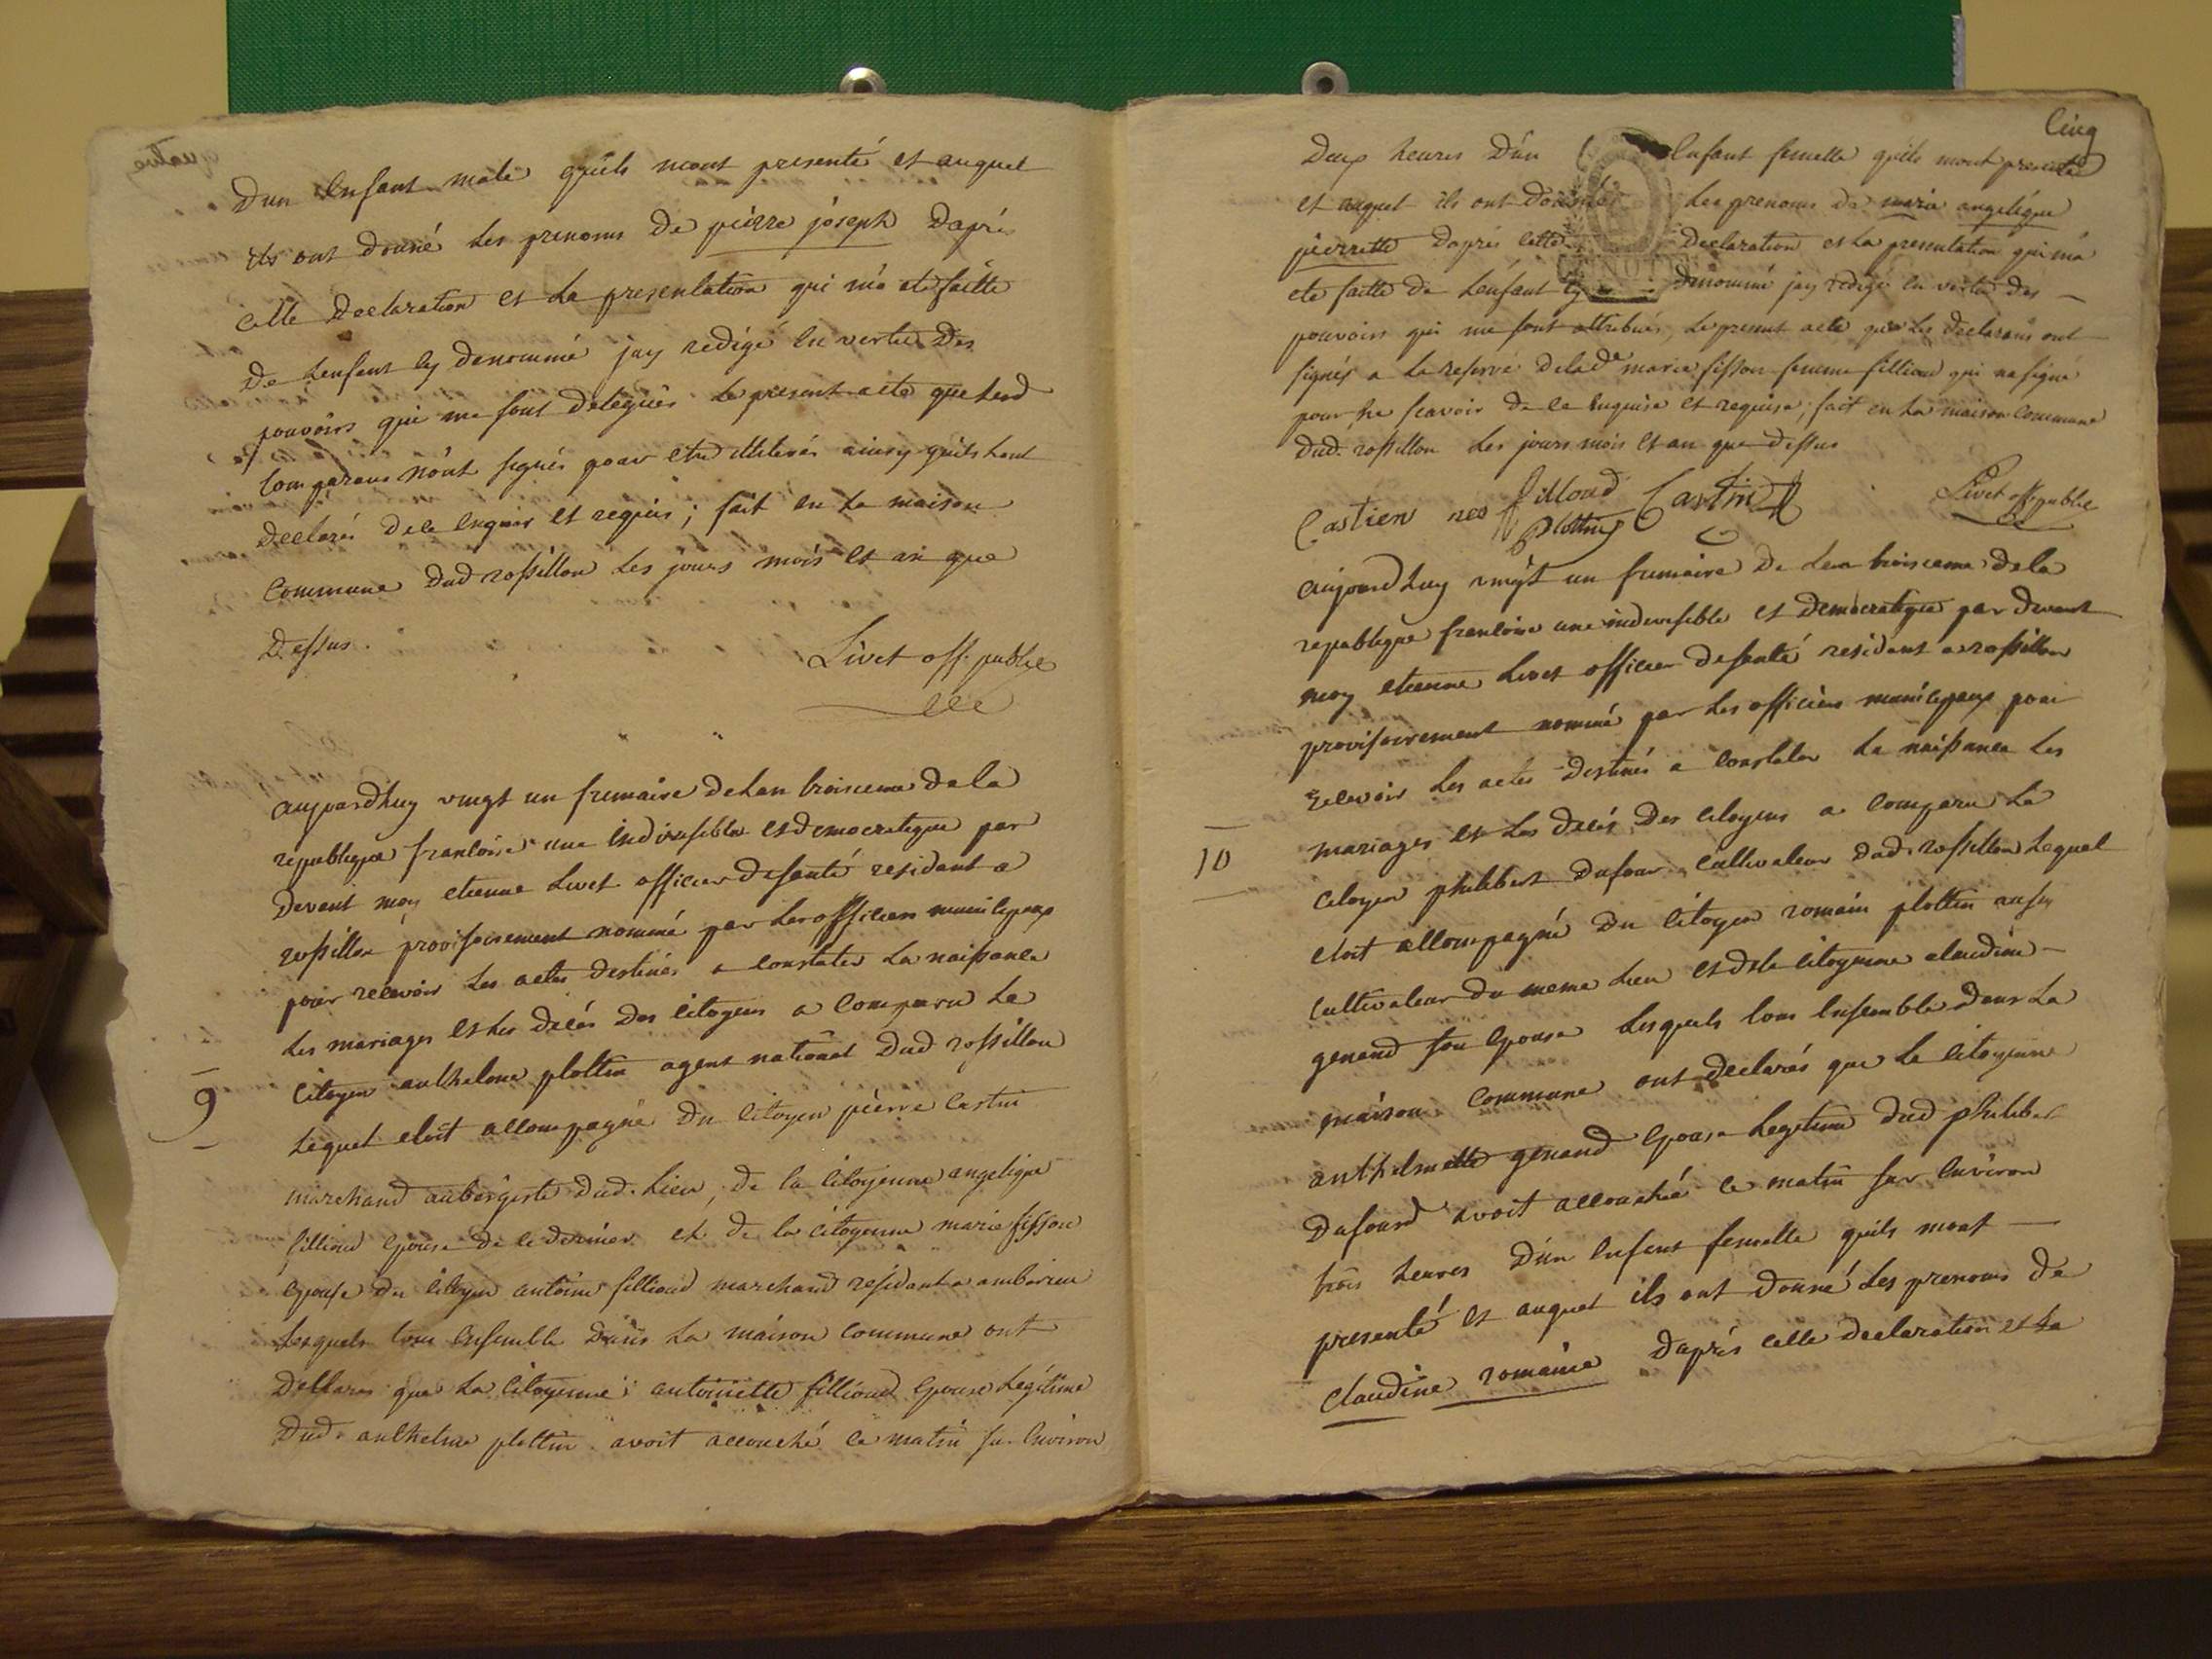 Dun Enfant male quils mont presenté et auquel
ils ont donné les prenoms de pierre joseph dapres
cette declaration et la presentation qui ma ete faitte
de lenfant cy denommé jay redigé en vertu des
pouvoirs qui me sont delegués le present acte que lesd
comparans nont signés pour etre illiterés ainsy quils lont
declarés de ce enquis et requis; fait en la maison
commune dud rossillon les jours mois et an que
dessus.
Livet off. public
aujourdhuy vingt un frimaire de lan troisieme de la
republique francoise une indivisible et democratique par
devant moy etienne Livet officier de santé residant a
rossillon provisoirement nommé par les officiers municipaux
pour recevoir les actes destinés a constater la naissance
les mariages et les décés des citoyens a comparu le
9
citoyen anthelme plottin agent national dud rossillon
lequel etoit accompagné du citoyen pierre castin
marchand aubergiste dud. lieu, de la citoyenne angelique
filliond epouse de ce dernier et de la citoyenne marie sisson
epouse du citoyen antoine filliond marchand residant a amberieu
lesquels tous ensemble dans la maison commune ont
declarés que la citoyenne antoinette filliond epouse legitime
dud. anthelme plottin avoit accouché ce matin sur environ
Cinq
deux heures dun Enfant femelle quils mont presenté
et auquel ils ont donnés les prenoms de marie angelique
pierrette dapres cette declaration et la presentation qui ma
ete faitte de lenfant cy denommé jay redigé en vertu des
pouvoirs qui me sont attribués, le present acte que les declarans ont
signés a la reserve de lade marie sisson femme filliond qui na signé
pour ne scavoir de ce enquise et requise; fait en la maison commune
dud. rossillon les jours mois et an que dessus
Castien nee filloud Castin Livet off. public
Plottin
aujourdhuy vingt un frimaire de lan troisieme de la
republique francoise une indivisible et democratique par devant
moy etienne Livet officier de santé residant a rossillon
provisoirement nommé par les officiers municipaux pour
recevoir les actes destinés a constater la naissance les
mariages et les décés des citoyens a comparu le
10
citoyen philibert dufour cultivateur dud. rossillon lequel
etoit accompagné du citoyen romain plottin aussy
cultivateur du meme lieu et de la citoyenne claudine
genand son epouse lesquels tous ensemble dans la
maison commune ont declarés que la citoyenne
anthelmette genand epouse legitime dud philibert
dufourd avoit accouchée ce matin sur environ
trois heures dun Enfant femelle quils mont
presenté et auquel ils ont donné les prenoms de
Claudine romaine dapres cette declaration et la